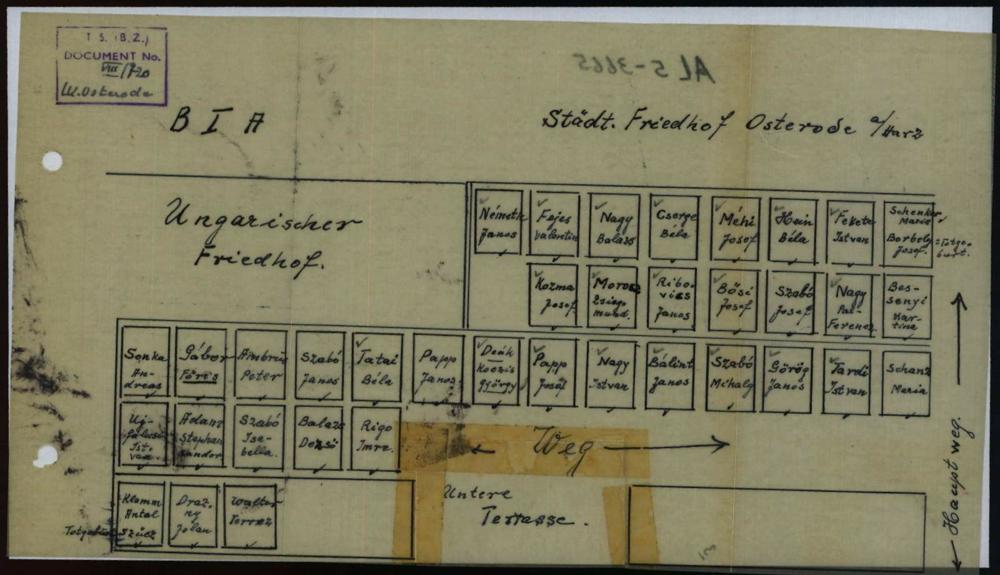 T S. (B.Z.)
DOCUMENT No.
VIII/720
W.Osterode
AL 5-3665
B I A
Städt. Friedhof Osterode a/Harz
Ungarischer
Friedhof.
Németh Janos
Fejes Valentin
Nagy Balazs
Cserge Béla
Méhi Josef
Hein Béla
Fekete Istvan
Schenker, Marei
Borbely Josef.
Kozma Josef
Morocz Zsiegmund.
Ribovics Janos
Bösi Josef
Szabó Josef
Nagy Pal-Ferencz
Bessenyi Martina
Sonka Andreas
Gábor Föris
Ambrus Peter
Szabó Janos
Tatai Béla
Papp Janos
Deák Koczis György
Papp Josef
Nagy Istvan
Bálint Janos
Szabó Mihaly
Görög Janos
Tardi Istvan
Schanz Maria
Adam Stephan Sandor
Szabó Isabella.
Balazs Dezsö
Rigo Imre.
← Weg →
Klamm Antal Szücz
Drazny Jolan
Walter
Untere
Terrasse.
← Haupt weg. →